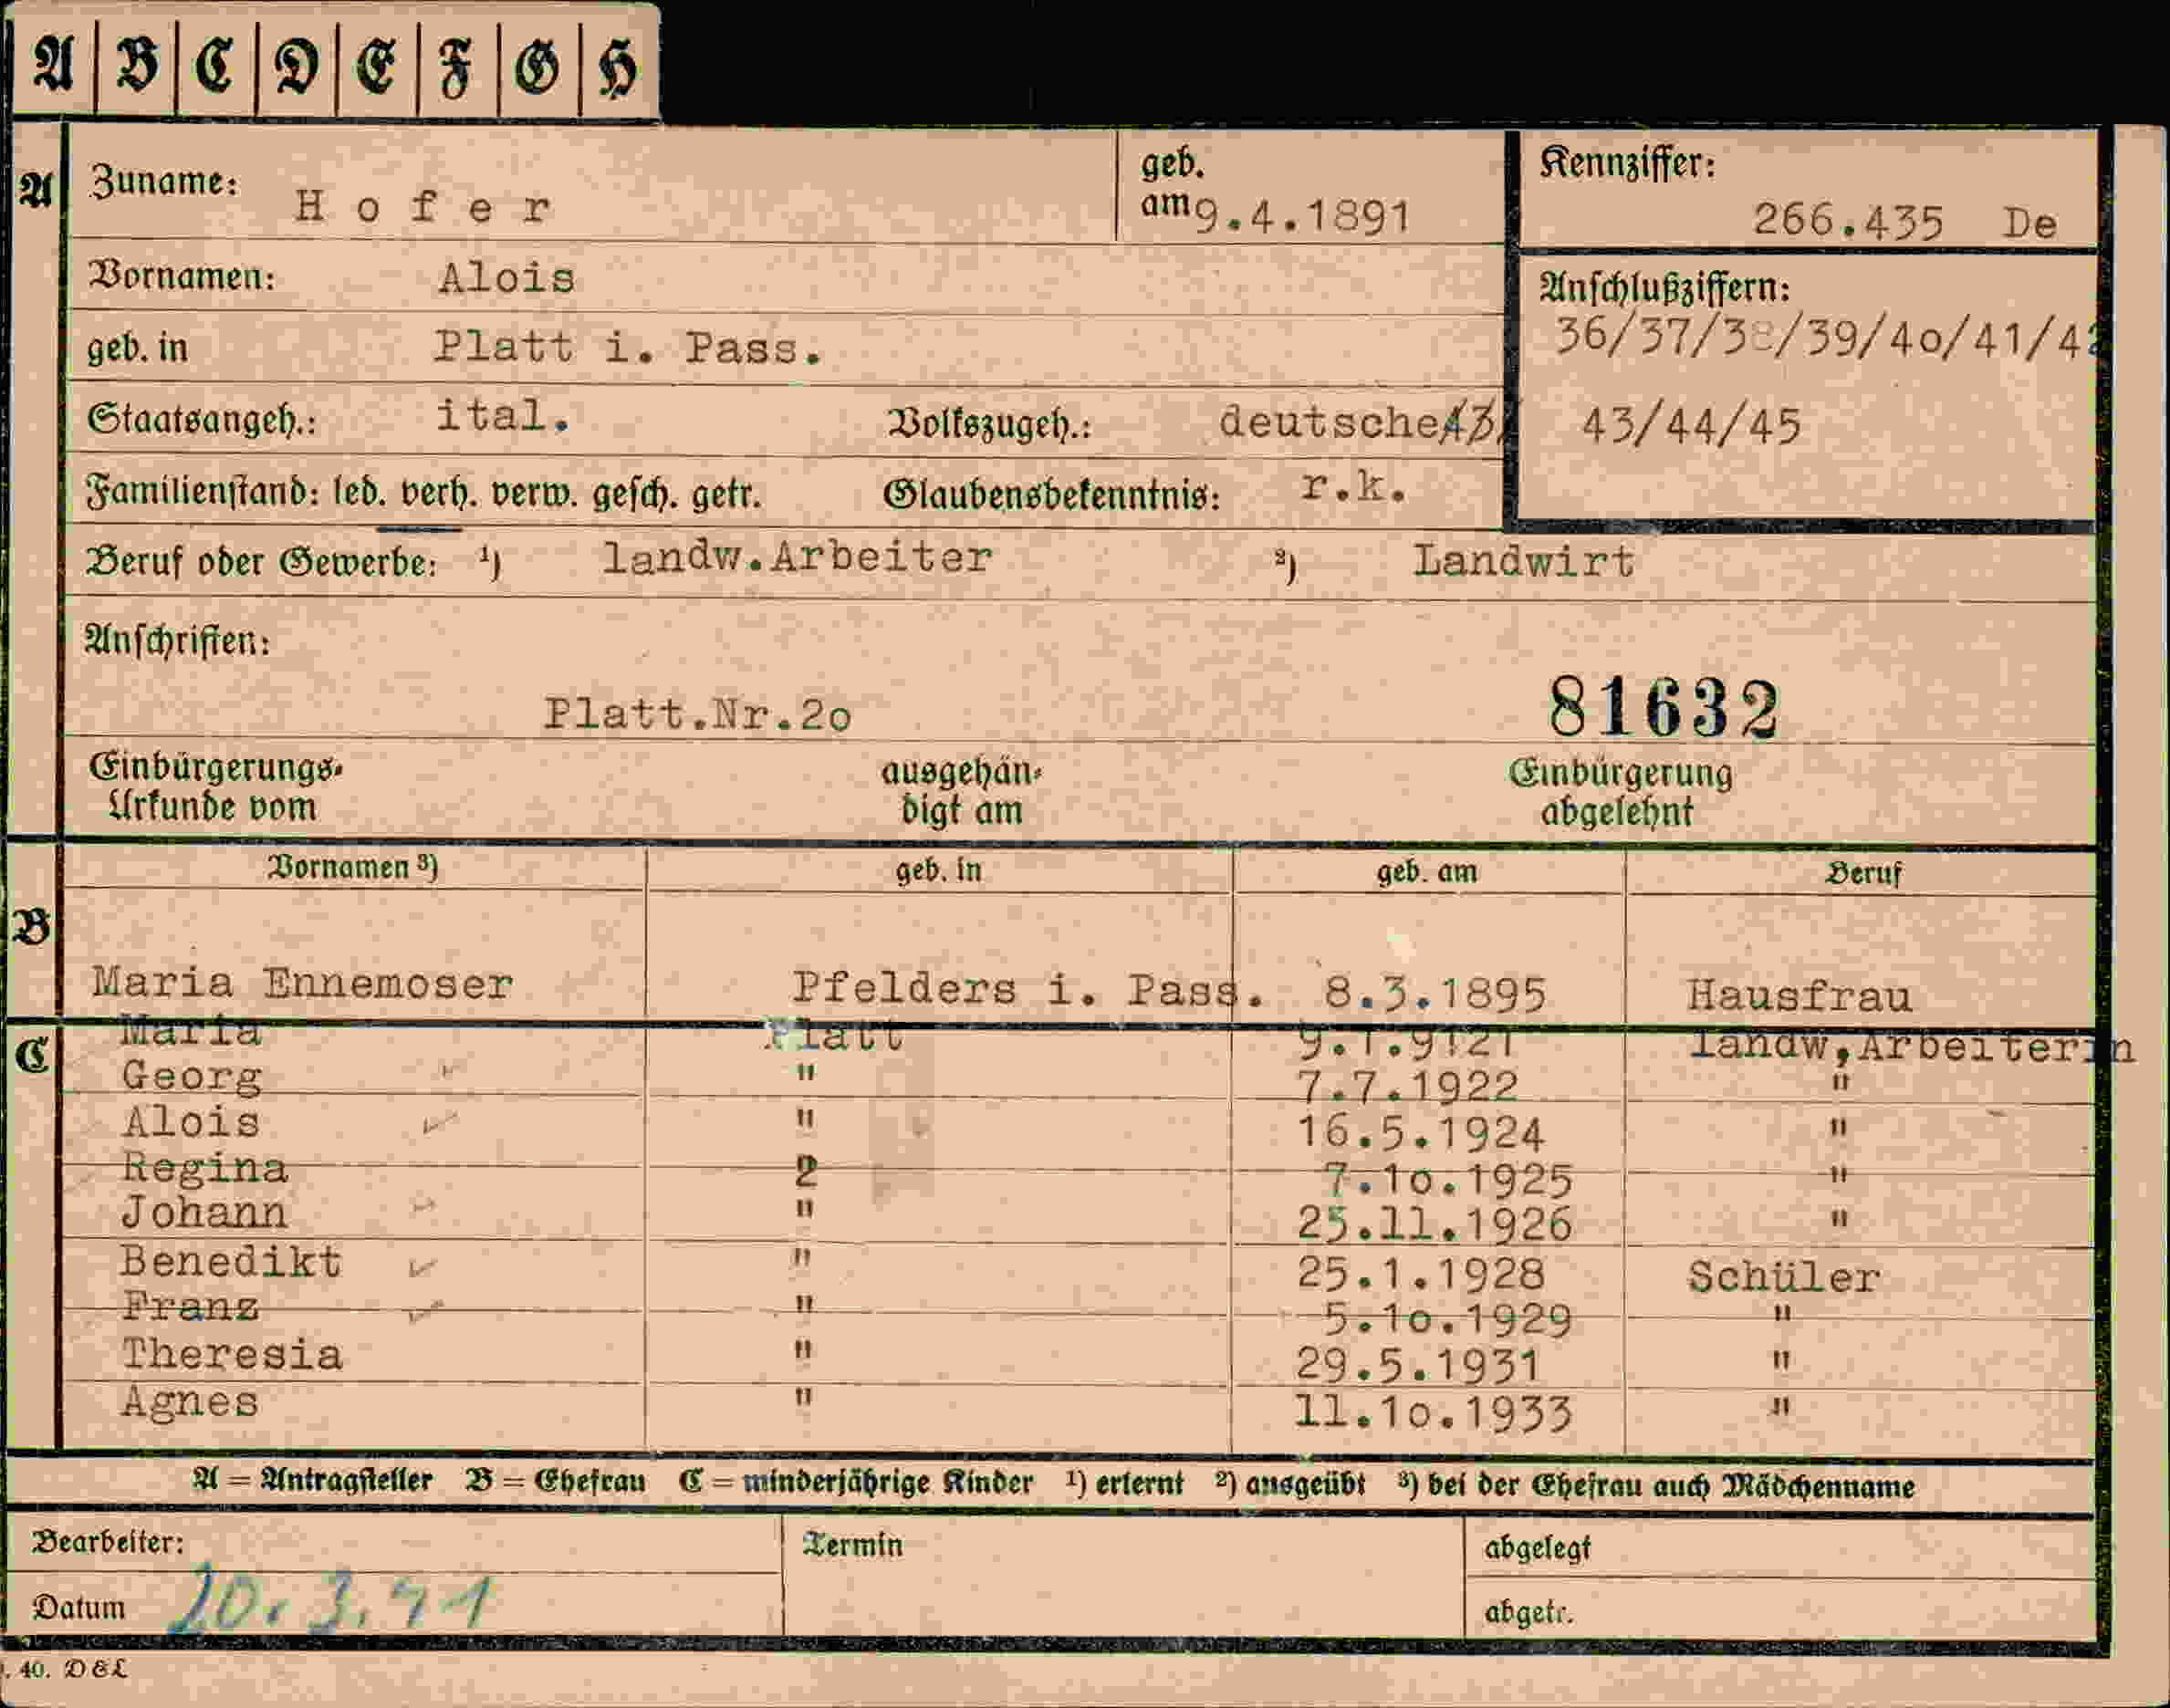 A B C D E F G H
A Zuname: Hofer geb. am 9.4.1891 Kennziffer: 266.435 De
Vornamen: Alois Anschlußziffern:
geb. in Platt i. Pass. 36/37/38/39/40/41/42
Staatsangeh.: ital. Volkszugeh.: deutsche 43/44/45
Familienstand: led. verh. verw. gesch. getr. Glaubensbekenntnis: r.k.
Beruf oder Gewerbe: ¹) landw.Arbeiter ²) Landwirt
Anschriften:
Platt.Nr.2o 81632
Einbürgerungs- ausgehän- Einbürgerung
Urkunde vom digt am abgelehnt
Vornamen ³) geb. in geb. am Beruf
B
Maria Ennemoser Pfelders i. Pass. 8.3.1895 Hausfrau
C Maria Platt 9.1.9121 landw,Arbeiterin
Georg " 7.7.1922 "
Alois " 16.5.1924 "
Regina 2 7.1o.1925 "
Johann " 25.11.1926 "
Benedikt " 25.1.1928 Schüler
Franz " 5.1o.1929 "
Theresia " 29.5.1931 "
Agnes " 11.1o.1933 "
A = Antragsteller B = Ehefrau C = minderjährige Kinder ¹) erlernt ²) ausgeübt ³) bei der Ehefrau auch Mädchenname
Bearbeiter: Termin abgelegt
Datum 20.3.41 abgetr.
. 40. D&L